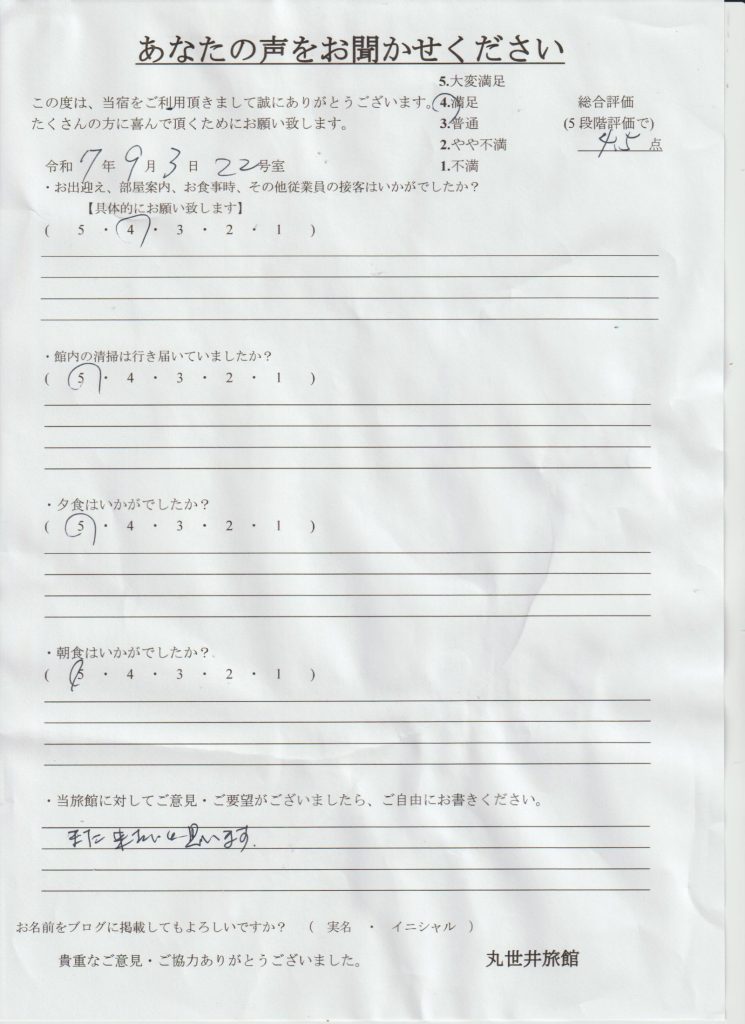 あなたの声をお聞かせください
5.大変満足
この度は、当宿をご利用頂きまして誠にありがとうございます。 4.満足 総合評価
たくさんの方に喜んで頂くためにお願い致します。 3.普通 (5段階評価で)
2.やや不満 4.5 点
令和 7 年 9 月 3 日 22号室 1.不満
・お出迎え、部屋案内、お食事時、その他従業員の接客はいかがでしたか？
【具体的にお願い致します】
( 5 ・ 4 ・ 3 ・ 2 ・ 1 )
・館内の清掃は行き届いていましたか？
( 5 ・ 4 ・ 3 ・ 2 ・ 1 )
・夕食はいかがでしたか？
( 5 ・ 4 ・ 3 ・ 2 ・ 1 )
・朝食はいかがでしたか？
( 5 ・ 4 ・ 3 ・ 2 ・ 1 )
・当旅館に対してご意見・ご要望がございましたら、ご自由にお書きください。
また来たいと思います.
お名前をブログに掲載してもよろしいですか？ ( 実名 ・ イニシャル )
貴重なご意見・ご協力ありがとうございました。 丸世井旅館